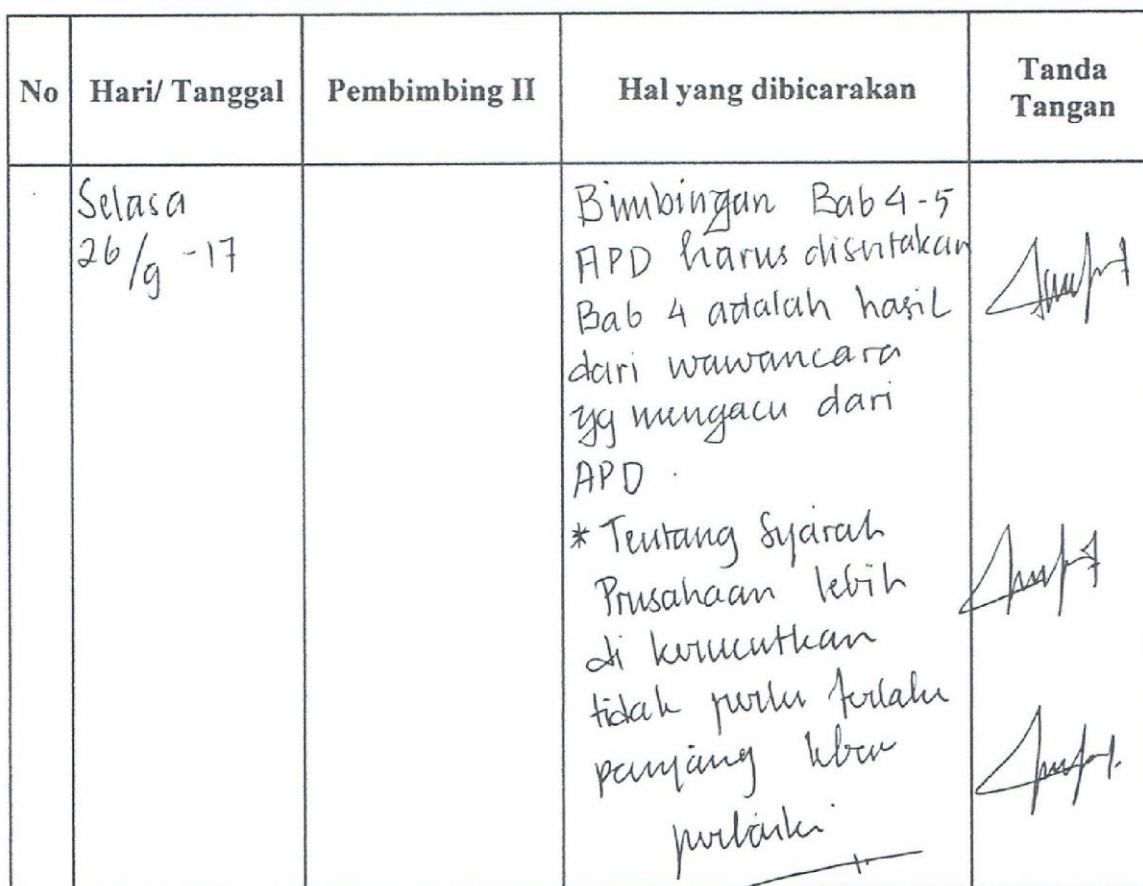 No
Hari/ Tanggal
Pembimbing II
Hal yang dibicarakan
Tanda
Tangan
Selasa
26/9 -17
Bimbingan Bab 4-5
APD harus disertakan
Bab 4 adalah hasil
dari wawancara
yg mengacu dari
APD.
* Tentang Syarah
Prusahaan lebih
di kerucutkan
tidak perlu terlalu
panjang lebar
perbaiki